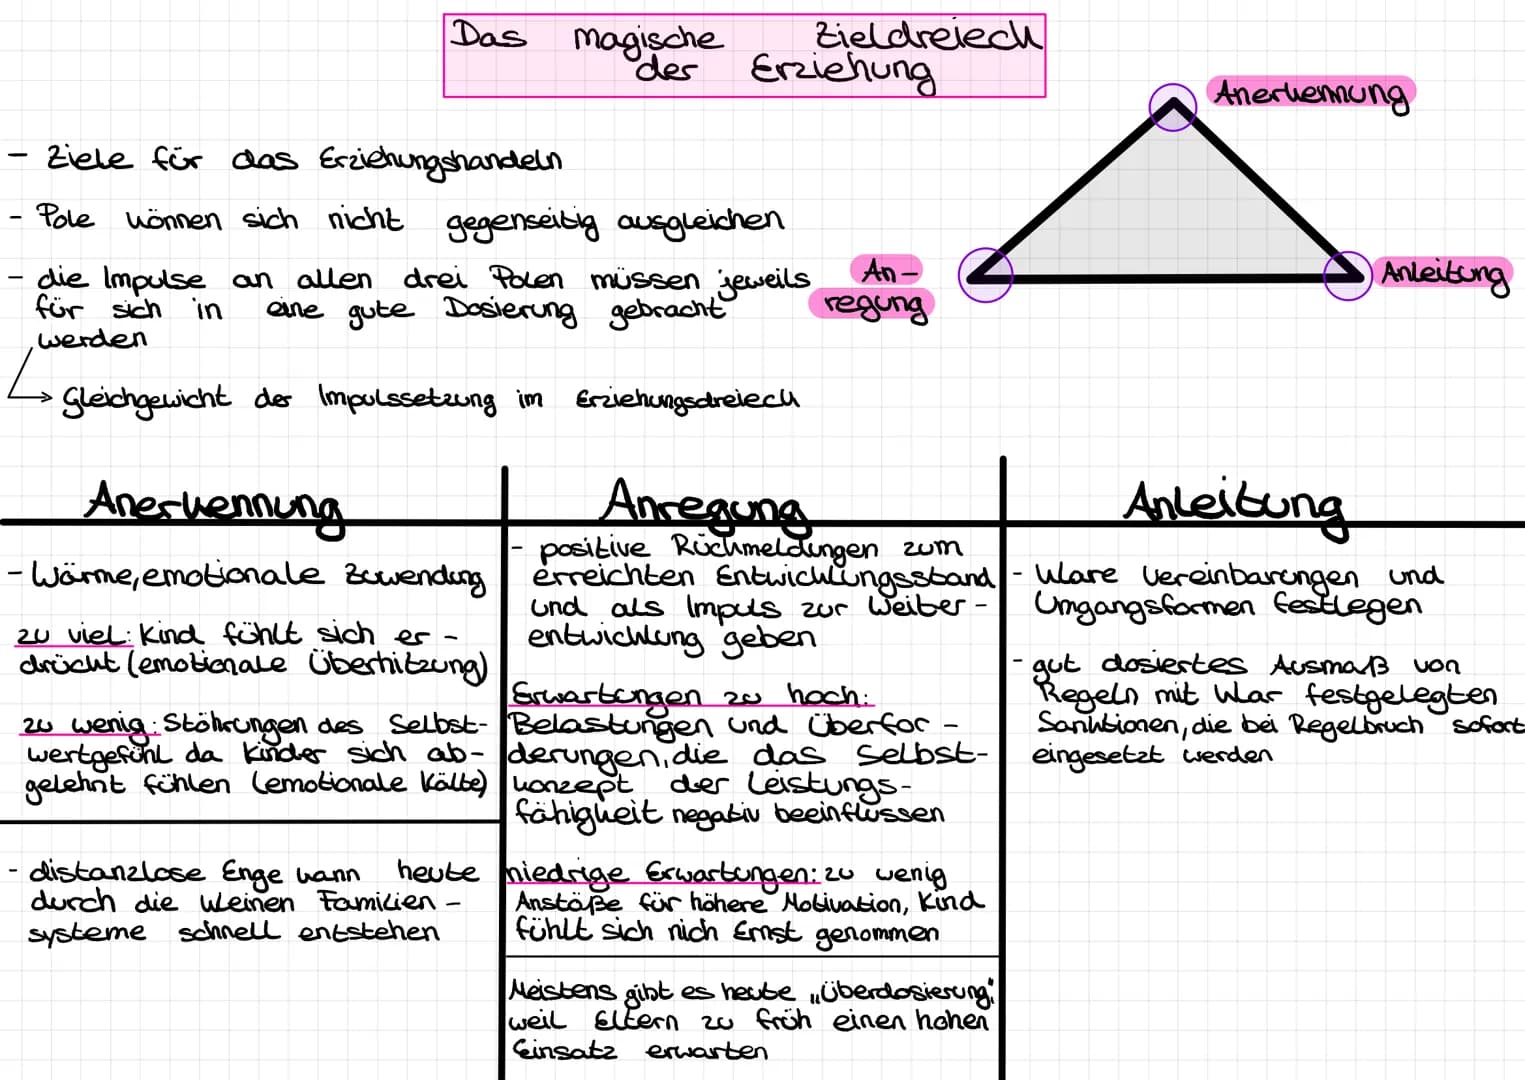 Das magische Zieldreieck
der Erziehung
Anerkennung
- Ziele für das Erziehungshandeln
- Pole können sich nicht gegenseitig ausgleichen
- die Impulse an allen drei Polen müssen jeweils
für sich in eine gute Dosierung gebracht
werden
An-
regung
Anleitung
→ Gleichgewicht der Impulssetzung im Erziehungsdreieck
Anerkennung
- Wärme, emotionale Zuwendung
zu viel: Kind fühlt sich er-
drückt (emotionale Überhitzung)
zu wenig: Stöhrungen des Selbst-
wertgefühl da Kinder sich ab-
gelehnt fühlen (emotionale Kälte)
- distanzlose Enge kann heute
durch die kleinen Familien-
systeme schnell entstehen
Anregung
- positive Rückmeldungen zum
erreichten Entwicklungsstand
und als Impuls zur Weiter-
entwicklung geben
Erwartungen zu hoch:
Belastungen und Überfor-
derungen, die das Selbst-
konzept der Leistungs-
fähigkeit negativ beeinflussen
niedrige Erwartungen: zu wenig
Anstöße für höhere Motivation, Kind
fühlt sich nich Ernst genommen
Meistens gibt es heute „Überdosierung",
weil Eltern zu früh einen hohen
Einsatz erwarten
Anleitung
- klare Vereinbarungen und
Umgangsformen festlegen
- gut dosiertes Ausmaß von
Regeln mit klar festgelegten
Sanktionen, die bei Regelbruch sofort
eingesetzt werden